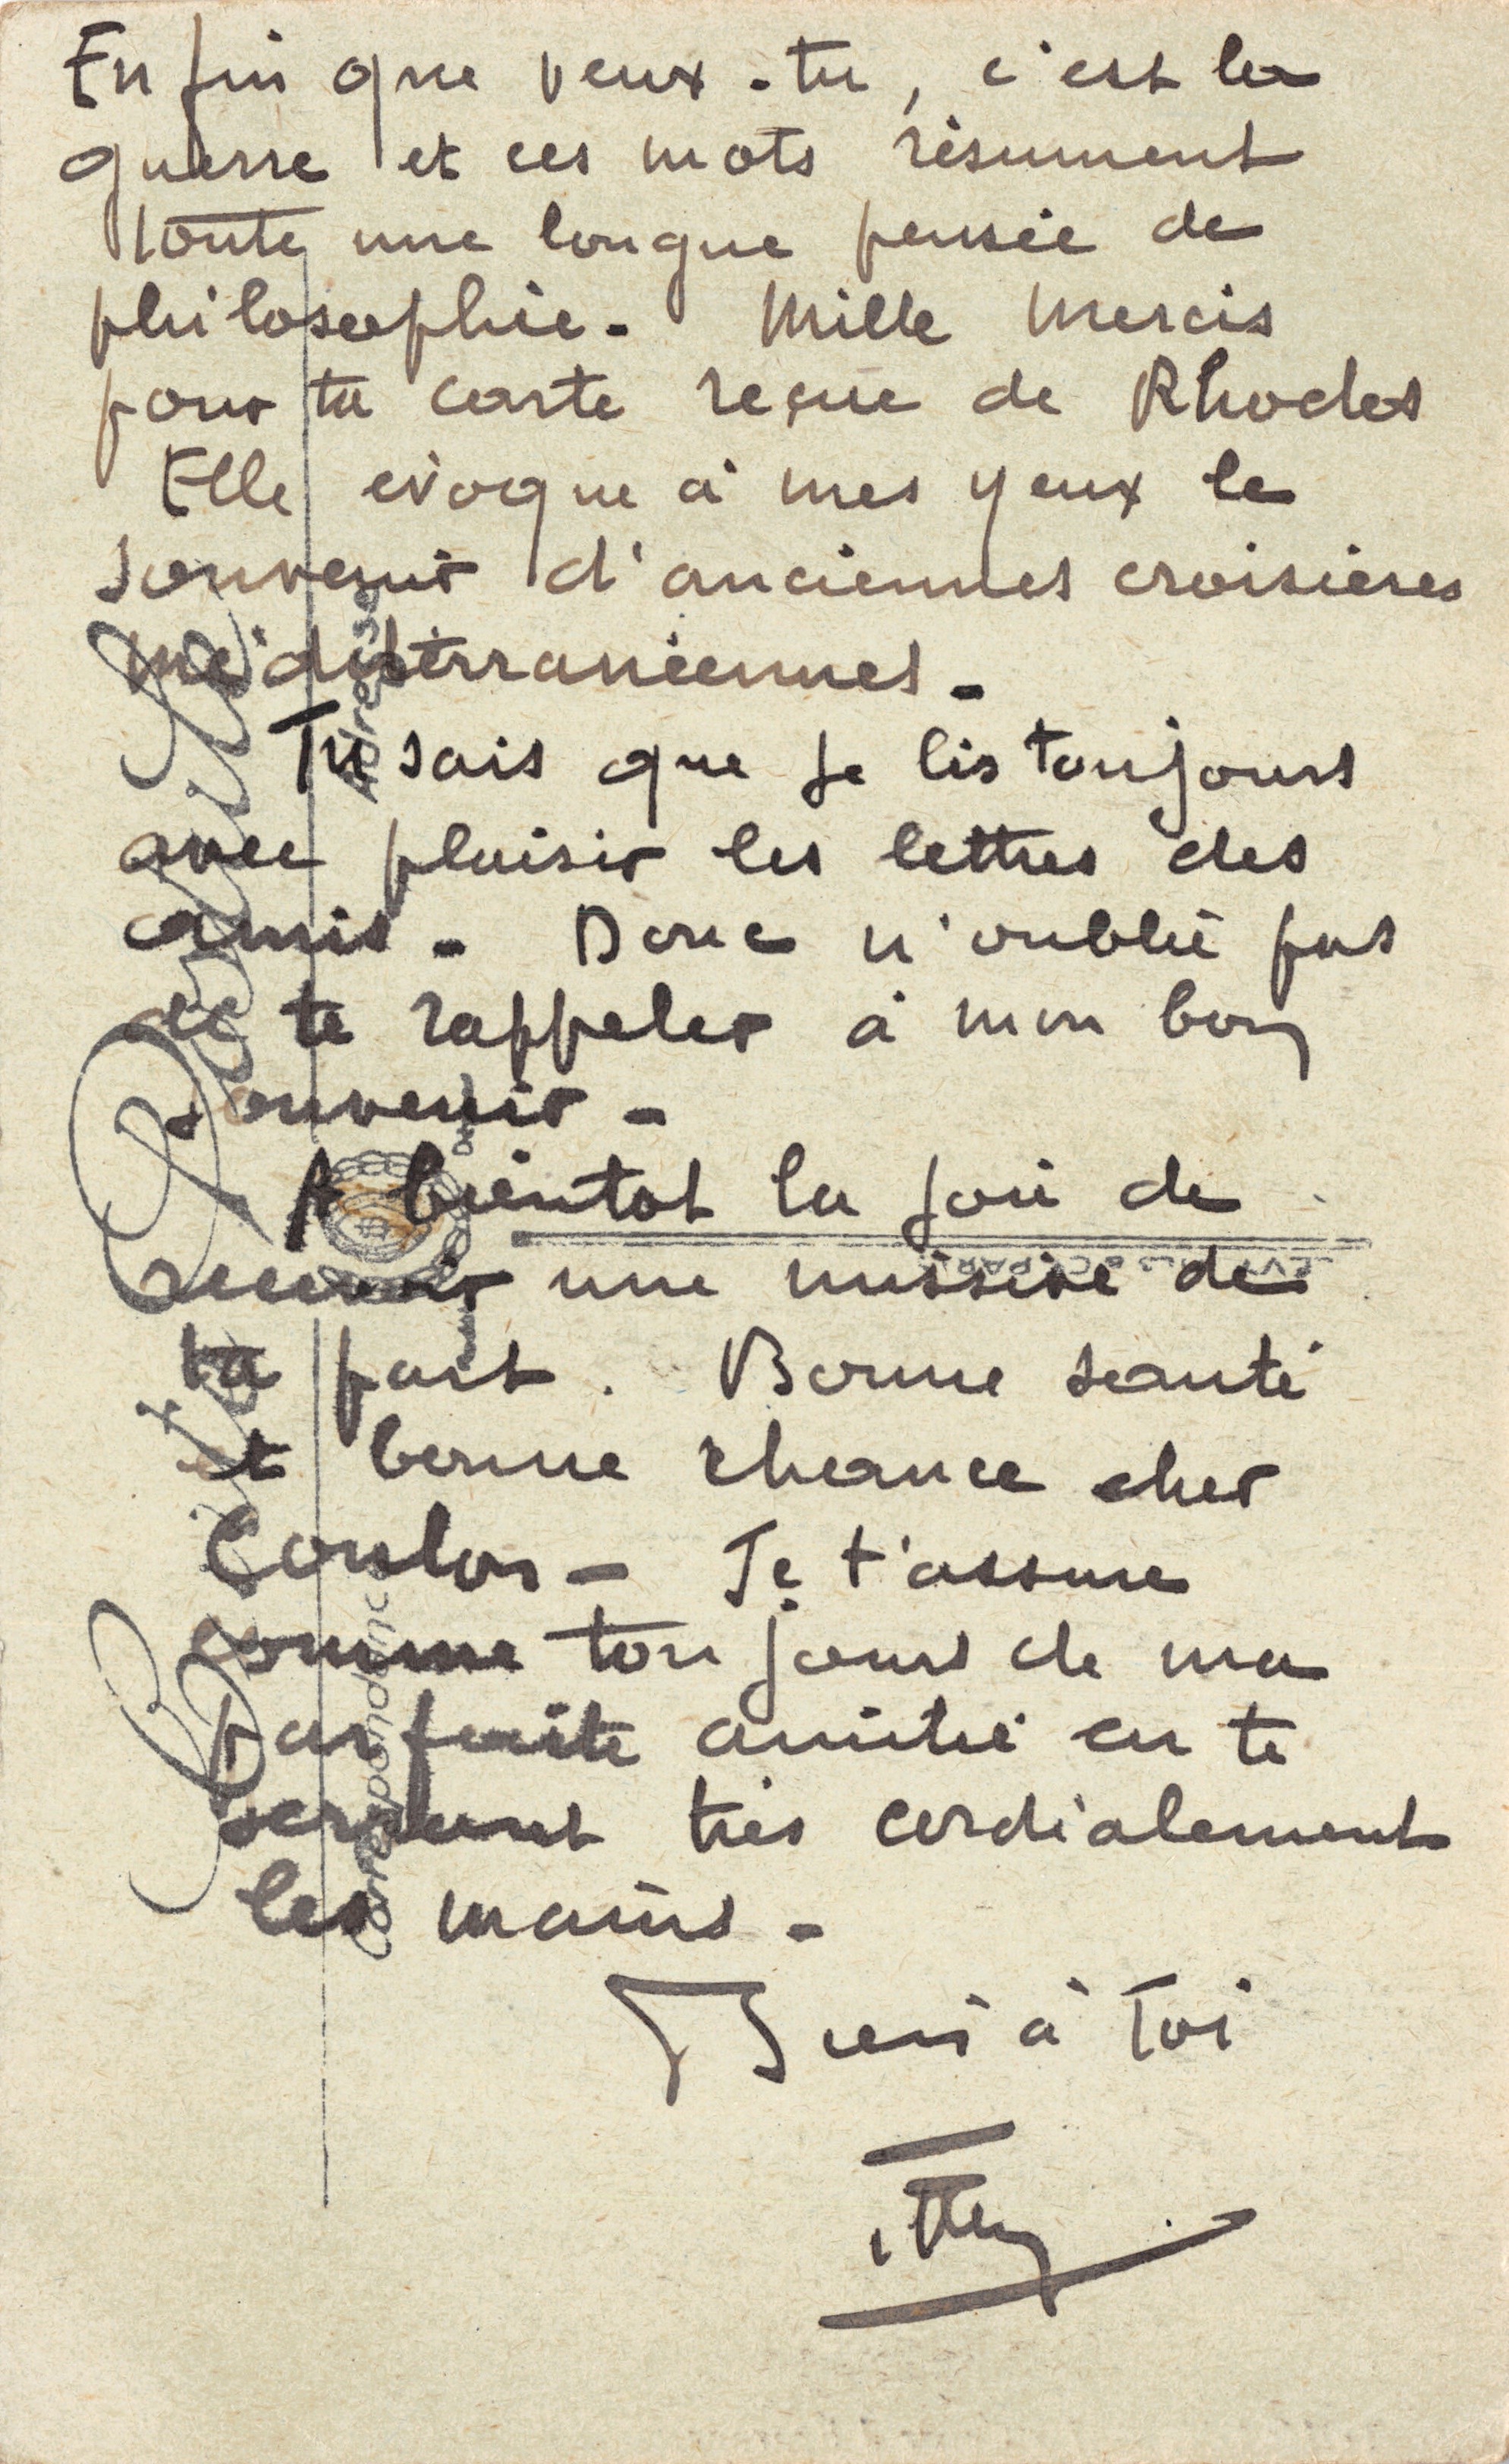 Enfin que veux-tu, c'est la
guerre et ces mots résument
toute une longue pensée de
philosophie - Mille mercis
pour ta carte reçue de Rhodes
Elle évoque à mes yeux le
souvenir d'anciennes croisières
méditerranéennes -
Tu sais que je lis toujours
avec plaisir les lettres des
amis - Donc n'oublie pas
de te rappeler à mon bon
souvenir -
A bientot la joie de
recevoir une missive de
ta part. Bonne santé
et bonne chance cher
Coulon - Je t'assure
comme toujours de ma
parfaite amitié en te
serrant très cordialement
les mains -
Bien à Toi
Carte Postale
Correspondance
Adresse